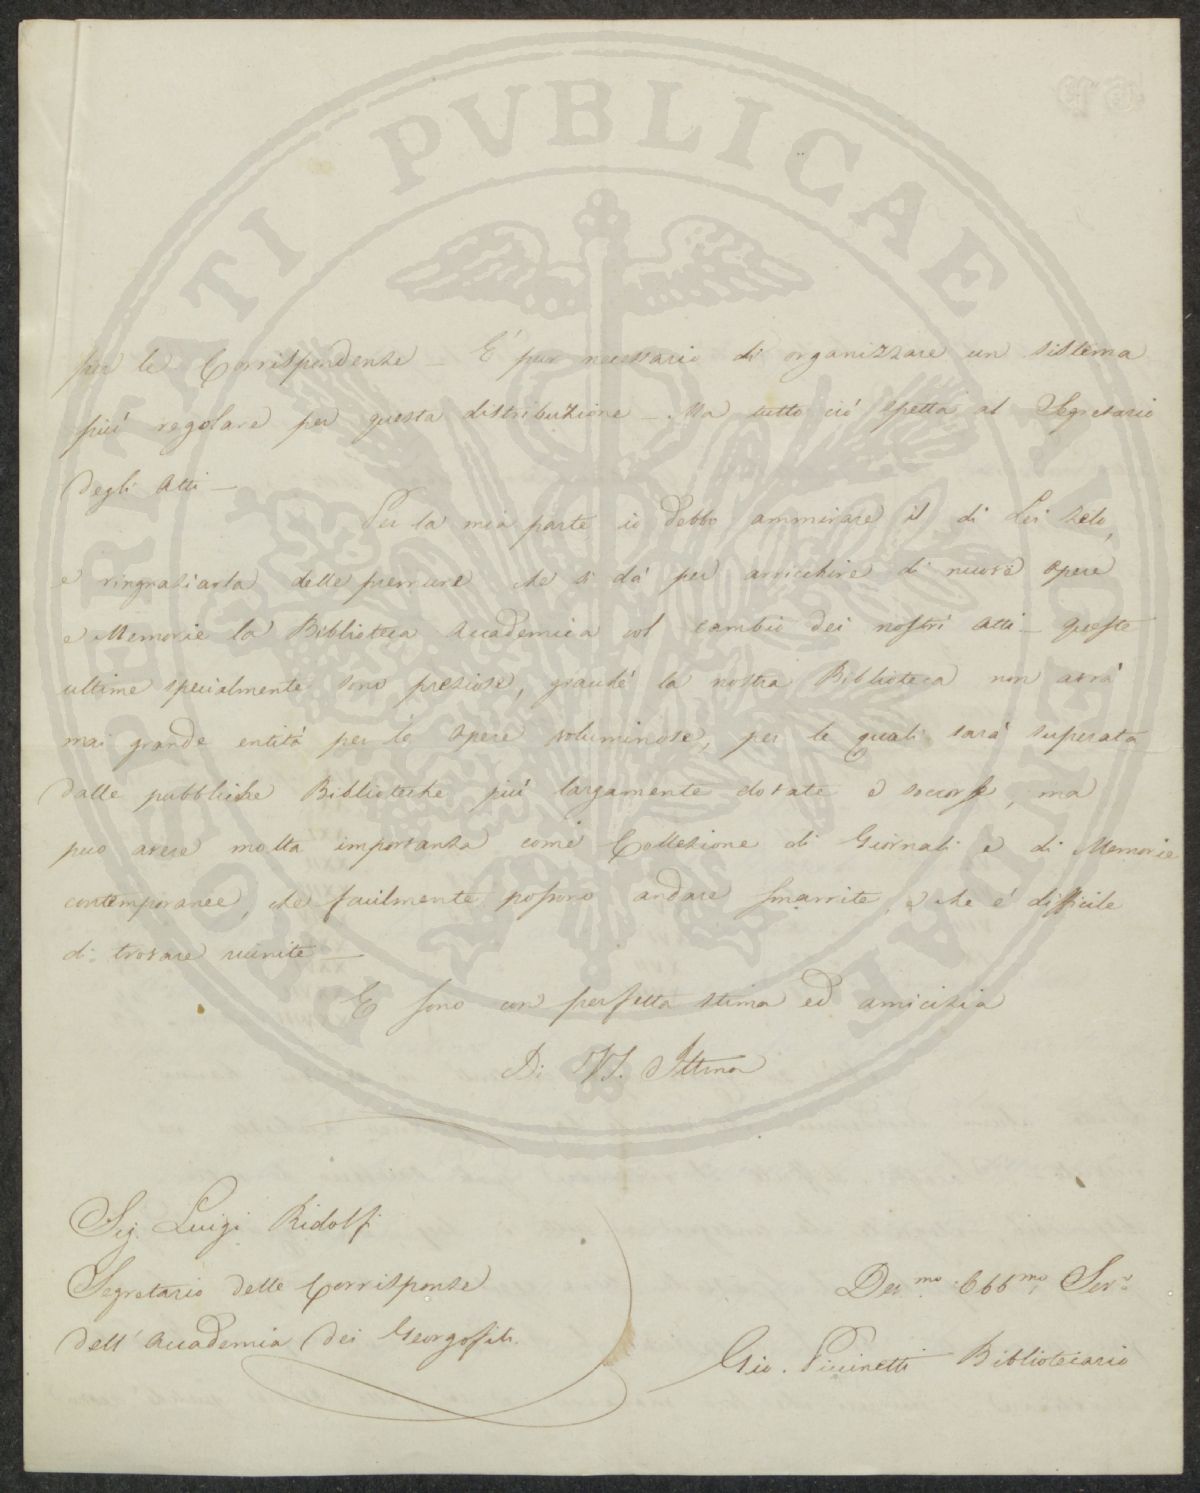 PROSPERITATI PVBLICAE AVGENDAE
per le Corrispondenze — E' pur necessario di organizzare un sistema
più regolare per questa distribuzione — Ma tutto ciò spetta al Segretario
degli Atti —
Per la mia parte io debbo ammirare il di Lei zelo,
e ringraziarla delle premure che si dà per arricchire di nuove opere
e Memorie la Biblioteca Accademica col cambio dei nostri Atti — queste
ultime specialmente sono preziose, giacchè la nostra Biblioteca non avrà
mai grande entità per le opere voluminose, per le quali sarà superata
dalle pubbliche Biblioteche più largamente dotate e soccorse, ma
può avere molta importanza come Collezione di Giornali e di Memorie
contemporanee, che facilmente possono andare smarrite, e che è difficile
di trovare riunite —
E sono con perfetta stima ed amicizia
Di VS. Illma
Sig. Luigi Ridolfi
Segretario delle Corrisponze
dell' Accademia dei Georgofili
Dev.mo Obb.mo Ser.e
Gio. Piccinetti Bibliotecario